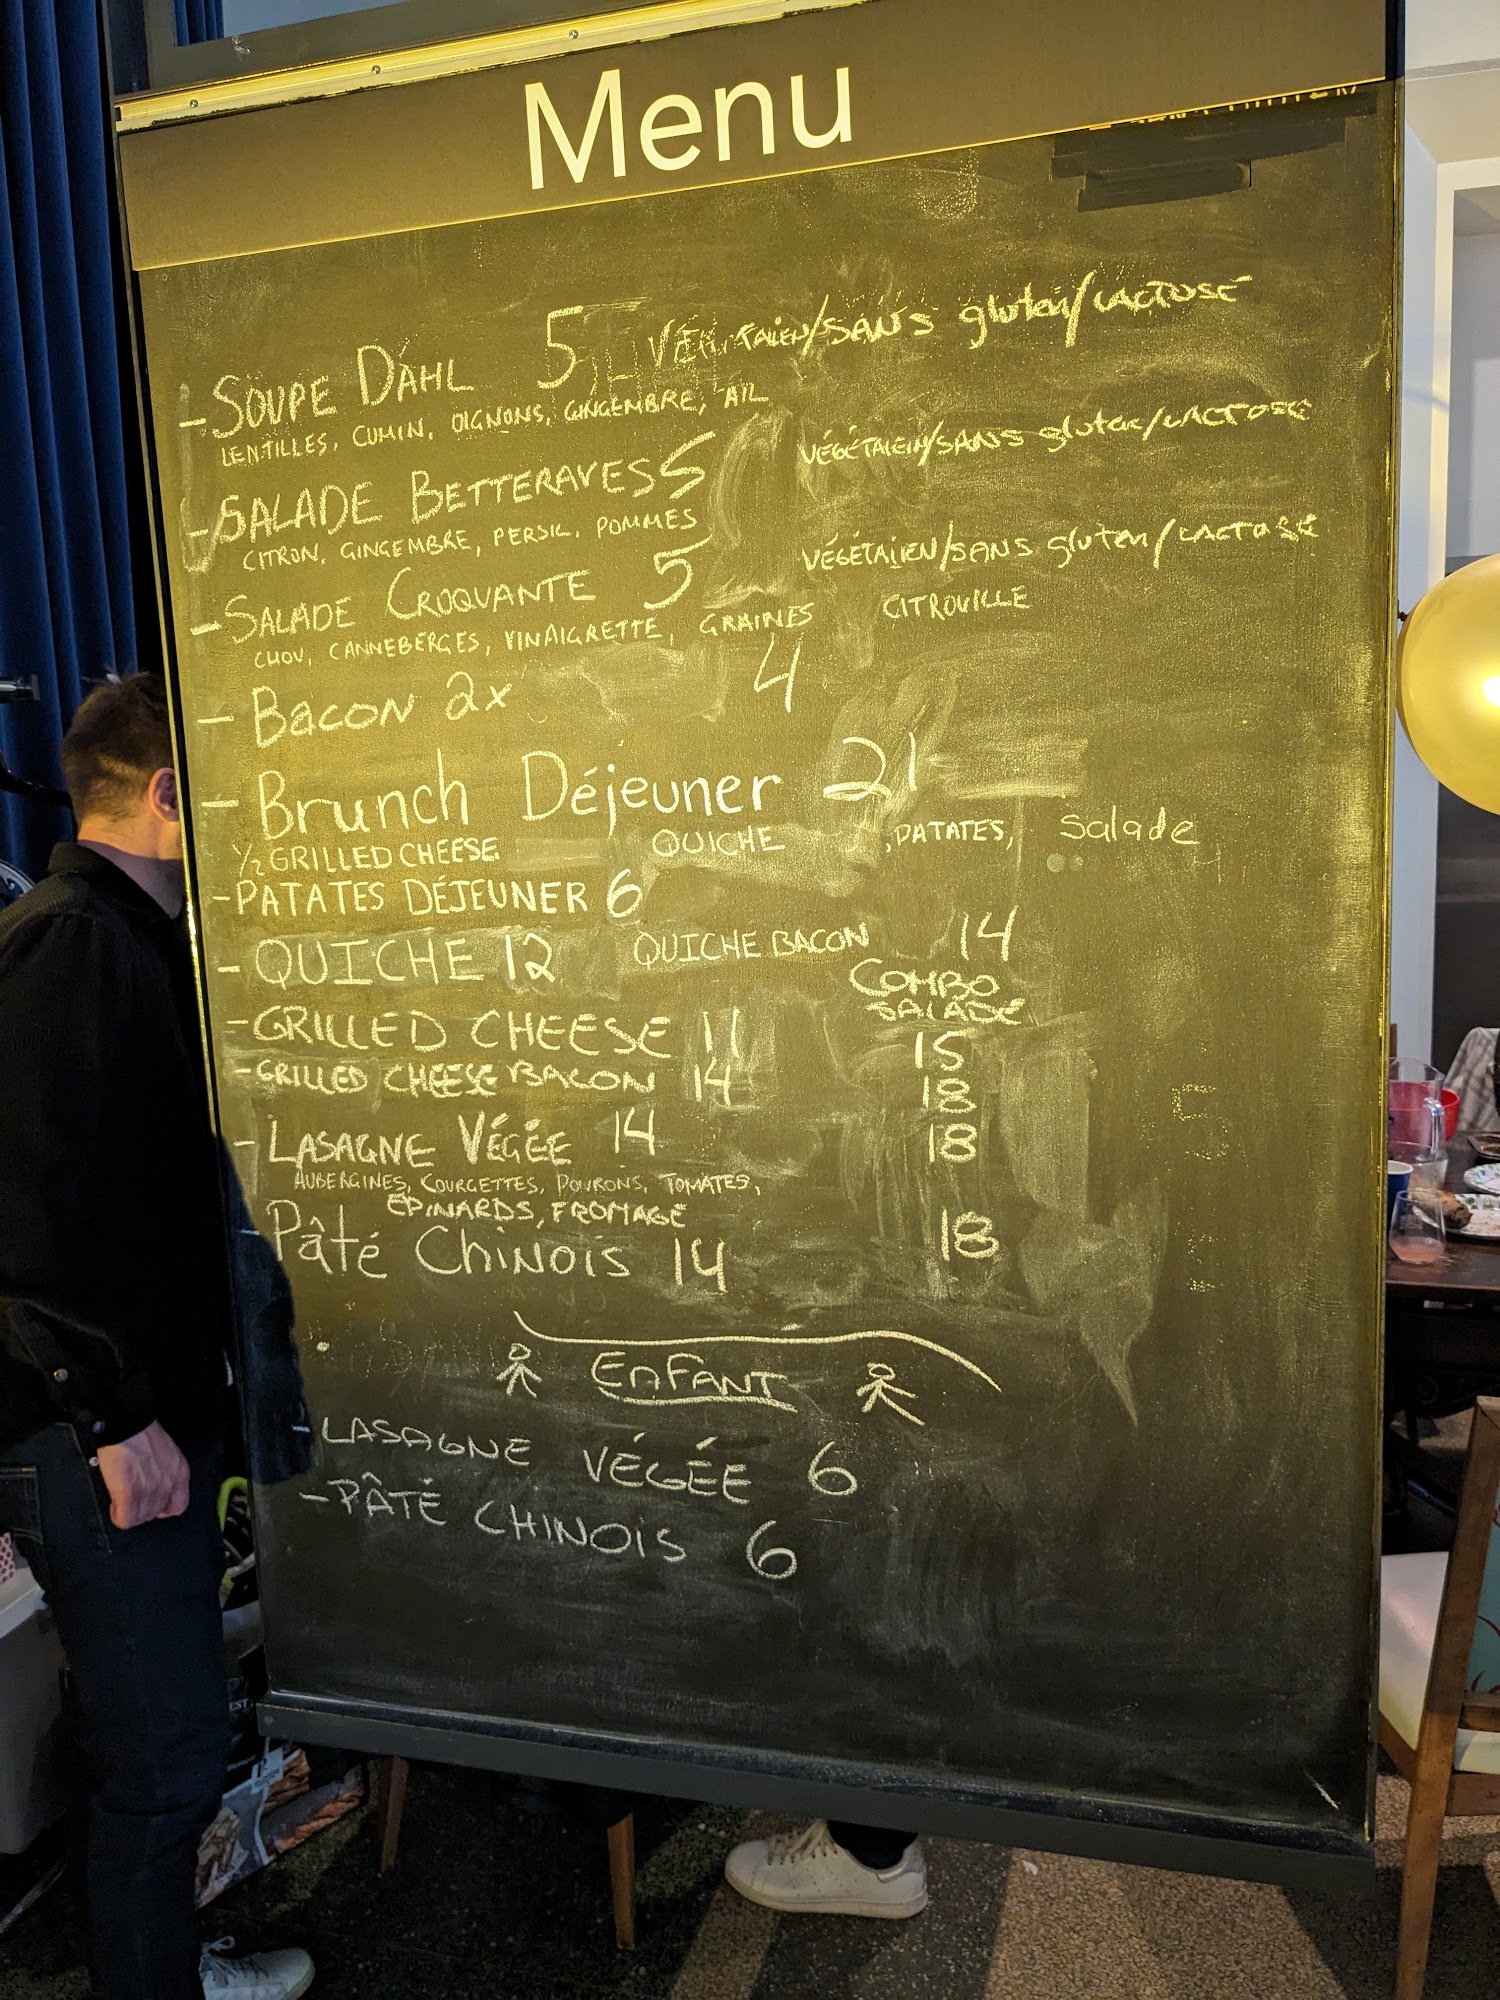 Menu
- SOUPE DAHL 5 VÉGÉTAIEN/SANS gluten/LACTOSE
LENTILLES, CUMIN, OIGNONS, GINGEMBRE, AIL
- SALADE BETTERAVES 5 VÉGÉTAIEN/SANS gluten/LACTOSE
CITRON, GINGEMBRE, PERSIL, POMMES
- SALADE CROQUANTE 5 VÉGÉTAIEN/SANS gluten/LACTOSE
CHOU, CANNEBERGES, VINAIGRETTE, GRAINES CITROUILLE
- BACON 2x 4
- Brunch Déjeuner 21
1/2 GRILLED CHEESE QUICHE , PATATES, salade
- PATATES DÉJEUNER 6
- QUICHE 12 QUICHE BACON 14
COMBO
SALADE
- GRILLED CHEESE 11 15
- GRILLED CHEESE BACON 14 18
- LASAGNE VÉGÉE 14 18
AUBERGINES, COURGETTES, POIVRONS, TOMATES,
ÉPINARDS, FROMAGE
- Pâté Chinois 14 18
ENFANT
- LASAGNE VÉGÉE 6
- PÂTÉ CHINOIS 6